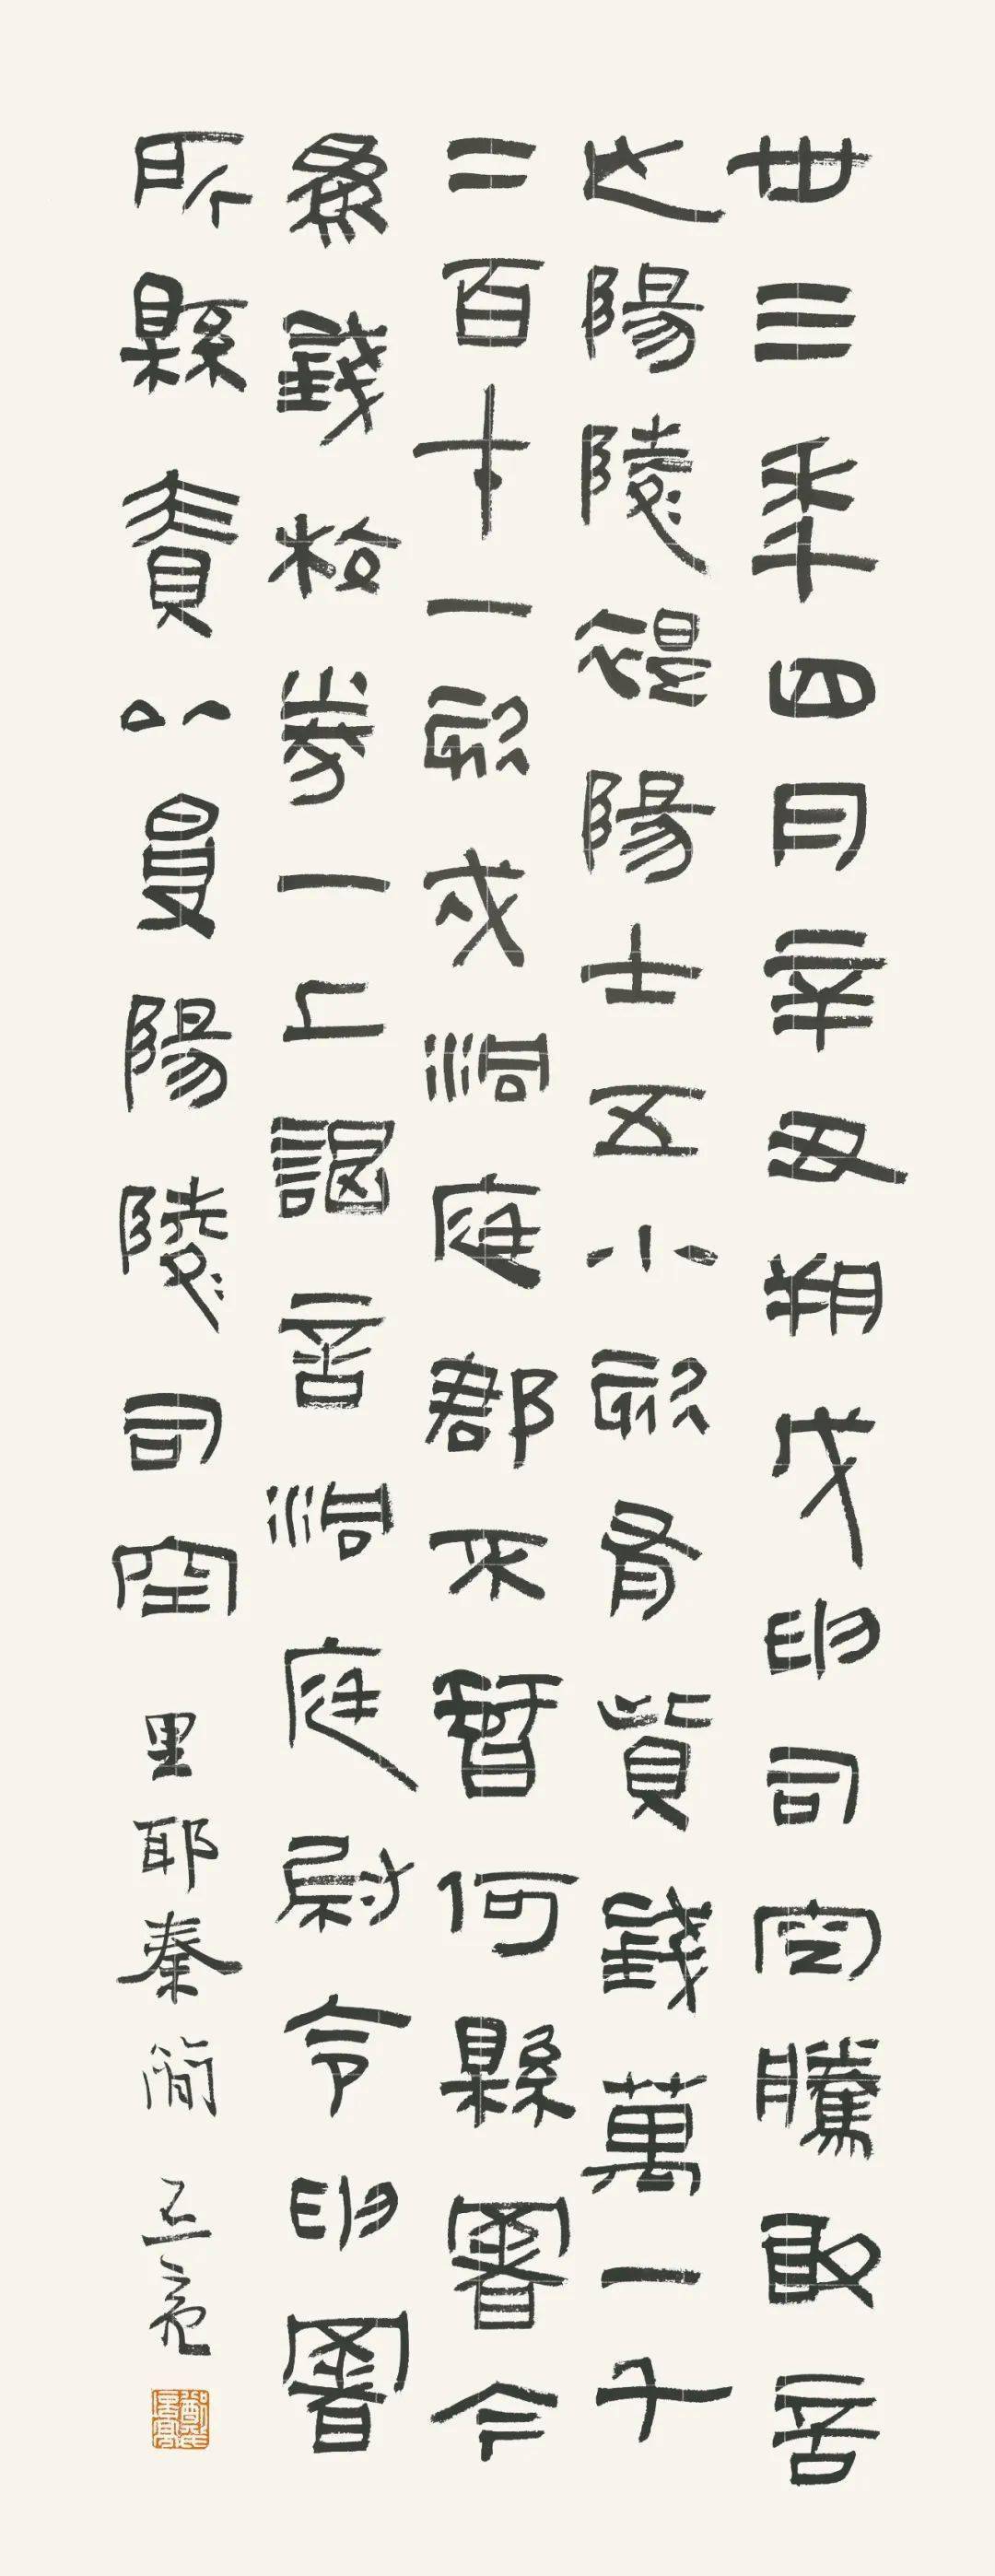 卅三年四月辛丑朔戊申司空騰敢言
之陽陵褆陽士五小欬有貲錢萬一千
二百七十一欬戍洞庭郡不智何縣署今
為錢校券一上謁言洞庭尉令申署
所縣責以受陽陵司空 里耶秦簡 亮